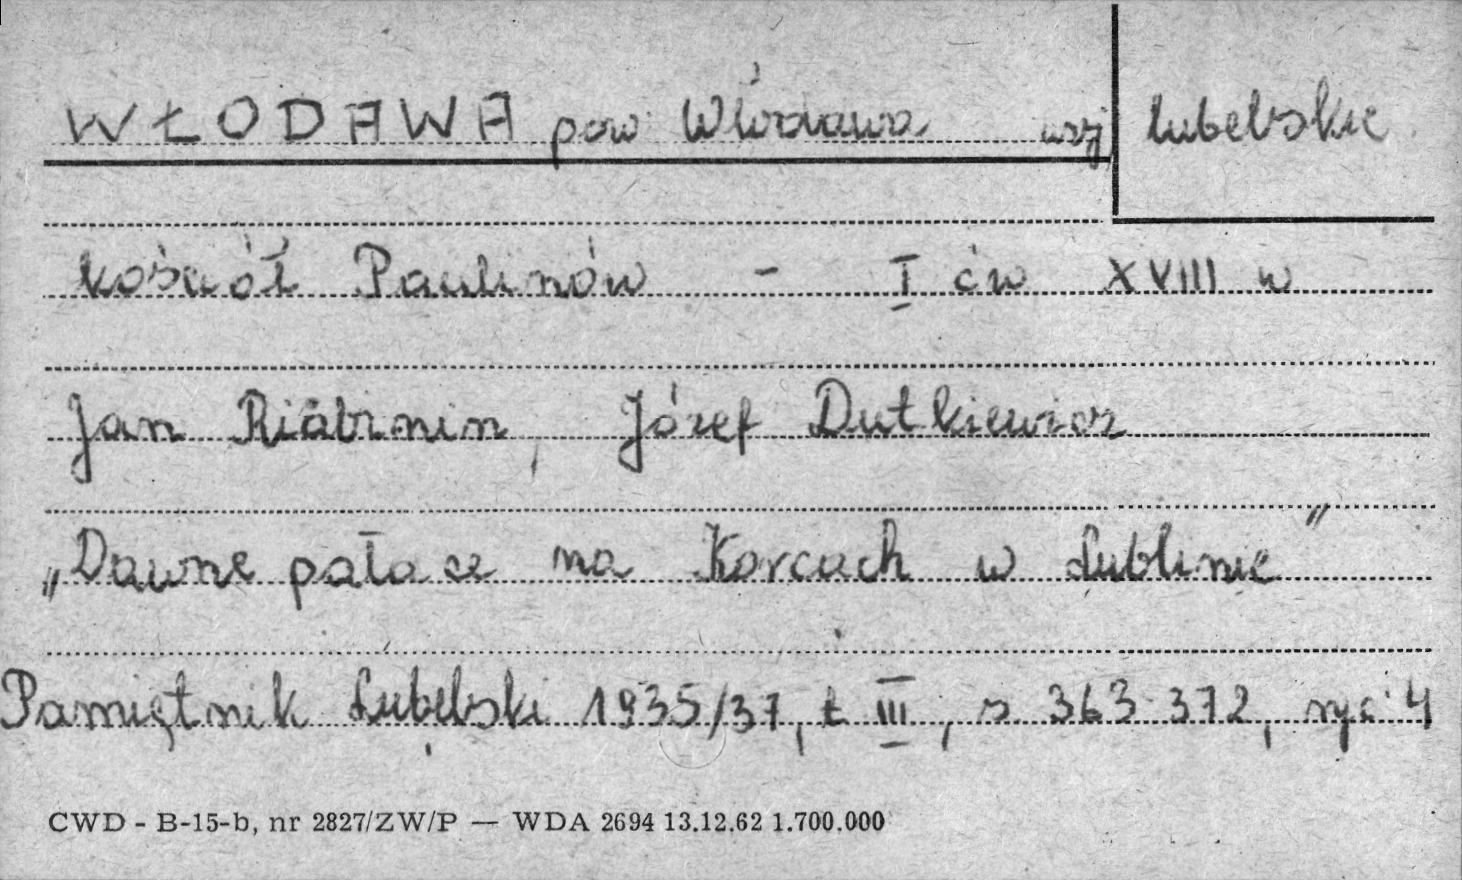 WŁODAWA pow Włodawa woj lubelskie
kościół Paulinów - I ćw XVIII w
Jan Riabinin, Józef Dutkiewicz
„Dawne pałace na Korcach w Lublinie"
Pamiętnik Lubelski 1935/37, t III, s 363-372, ryc 4
CWD - B-15-b, nr 2827/ZW/P — WDA 2694 13.12.62 1.700.000